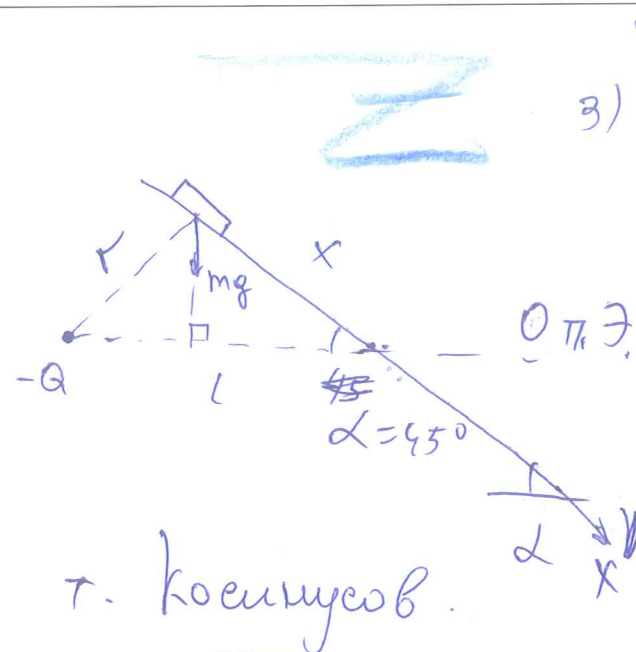 3)
r
x
mg
0 п.Э.
-Q
l
α = 45°
α
X
т. Косинусов.